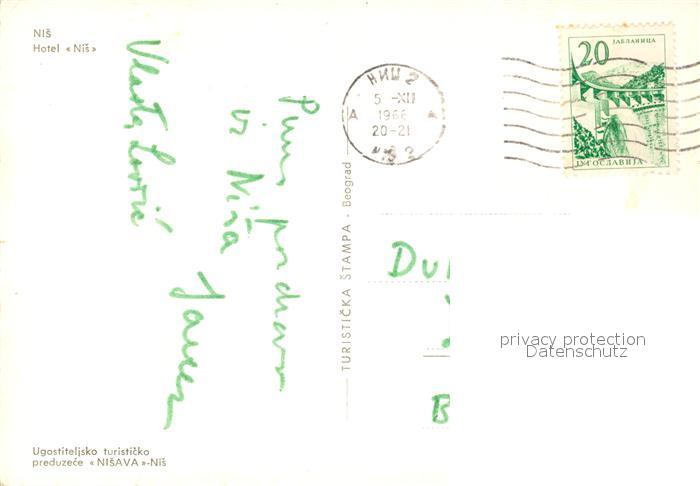 NIŠ
Hotel «Niš»
Puno pozdrava
iz Niša
Vlasta
НИШ 2
5 -XII
1966
20-21
A A
NIŠ 2
20
ЈАБЛАНИЦА
ЈУГОСЛАВИЈА
TURISTIČKA ŠTAMPA - Beograd
Du
B
privacy protection
Datenschutz
Ugostiteljsko turističko
preduzeće «NIŠAVA»-Niš